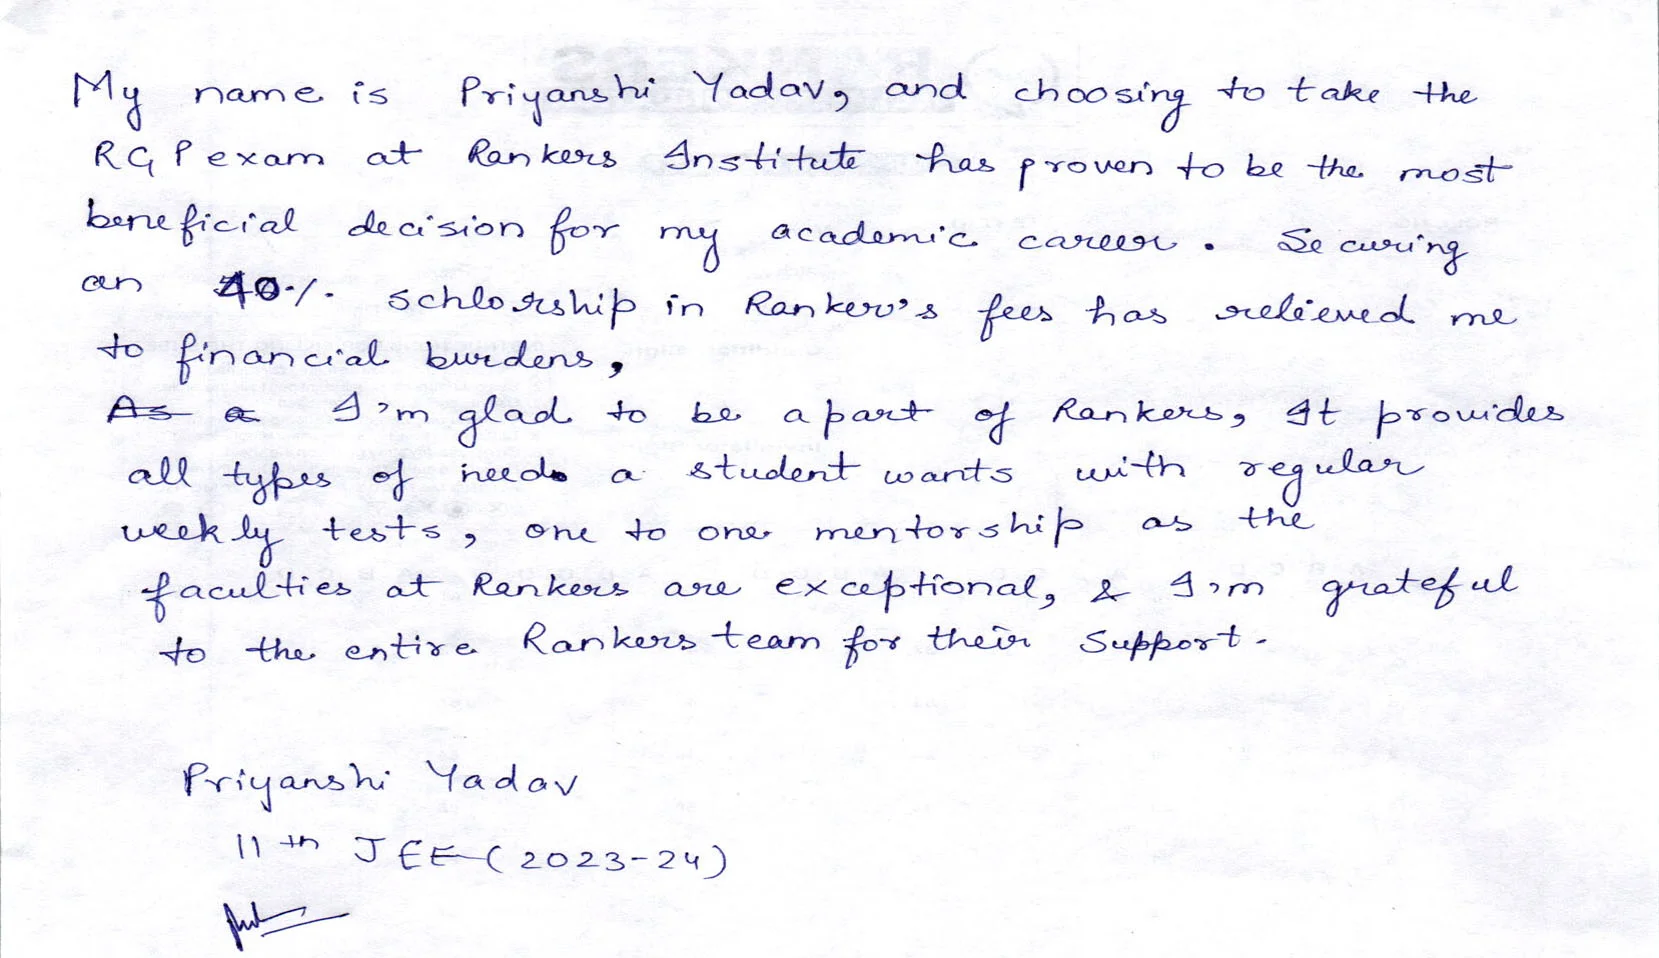 My name is Priyanshi Yadav, and choosing to take the
RGP exam at Rankers Institute has proven to be the most
beneficial decision for my academic career. Securing
an 40% schlorship in Ranker's fees has relieved me
to financial burdens,
As a I'm glad to be a part of Rankers, It provides
all types of needs a student wants with regular
weekly tests, one to one mentorship as the
faculties at Rankers are exceptional, & I'm grateful
to the entire Rankers team for their support.
Priyanshi Yadav
11th JEE (2023-24)